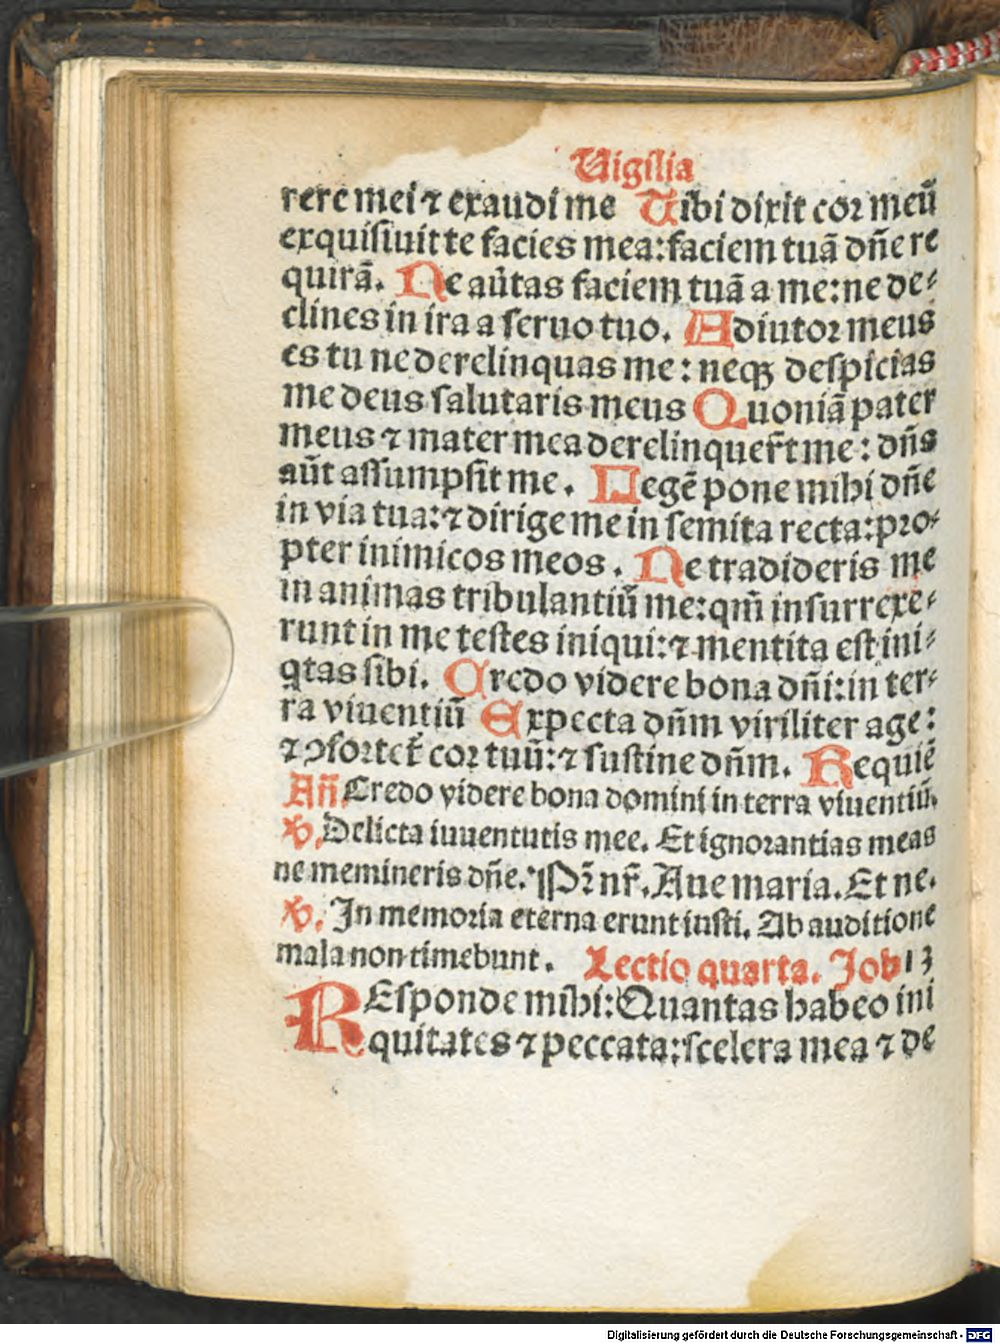 Uigilia
rere mei ⁊ exaudi me Tibi dixit cor meū
exquisiuit te facies mea: faciem tuā dñe re
quirā. Ne aūtas faciem tuā a me: ne de⸗
clines in ira a seruo tuo. Adiutor meus
es tu ne derelinquas me: neqꝫ despicias
me deus salutaris meus Quoniā pater
meus ⁊ mater mea derelinquer̄t me: dñs
aūt assumpsit me. Legē pone mihi dñe
in via tua: ⁊ dirige me in semita recta: pro⸗
pter inimicos meos. Ne tradideris me
in animas tribulantiū me: qm̄ insurrexe⸗
runt in me testes iniqui: ⁊ mentita est ini⸗
qtas sibi. Credo videre bona dñi: in ter⸗
ra viuentiū Expecta dñm viriliter age:
⁊ ꝯfortet̄ cor tuū: ⁊ sustine dñm. Requiē
Añ. Credo videre bona domini in terra viuentiū.
℣. Delicta iuuentutis mee. Et ignorantias meas
ne memineris dñe. Pr̄ nr̄. Aue maria. Et ne.
℣. In memoria eterna erunt iusti. Ab auditione
mala non timebunt. Lectio quarta. Job 13
REsponde mihi: Quantas habeo ini
quitates ⁊ peccata: scelera mea ⁊ de
Digitalisierung gefördert durch die Deutsche Forschungsgemeinschaft - DFG